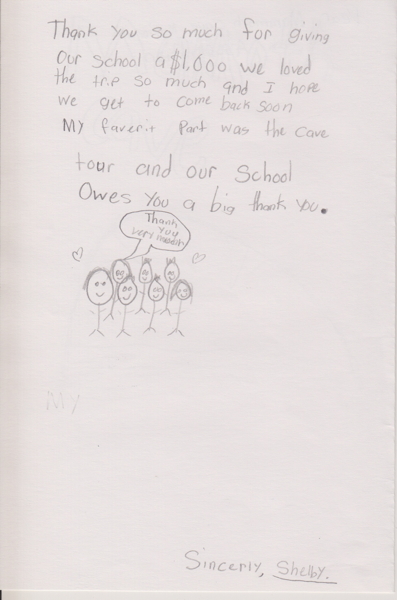 Thank you so much for giving
Our school a $1,000 we loved
the trip so much and I hope
we get to come back soon
My faverit Part was the cave
tour and our School
Owes You a big thank you.
Thank
you
very
My
Sincerly, Shelby.